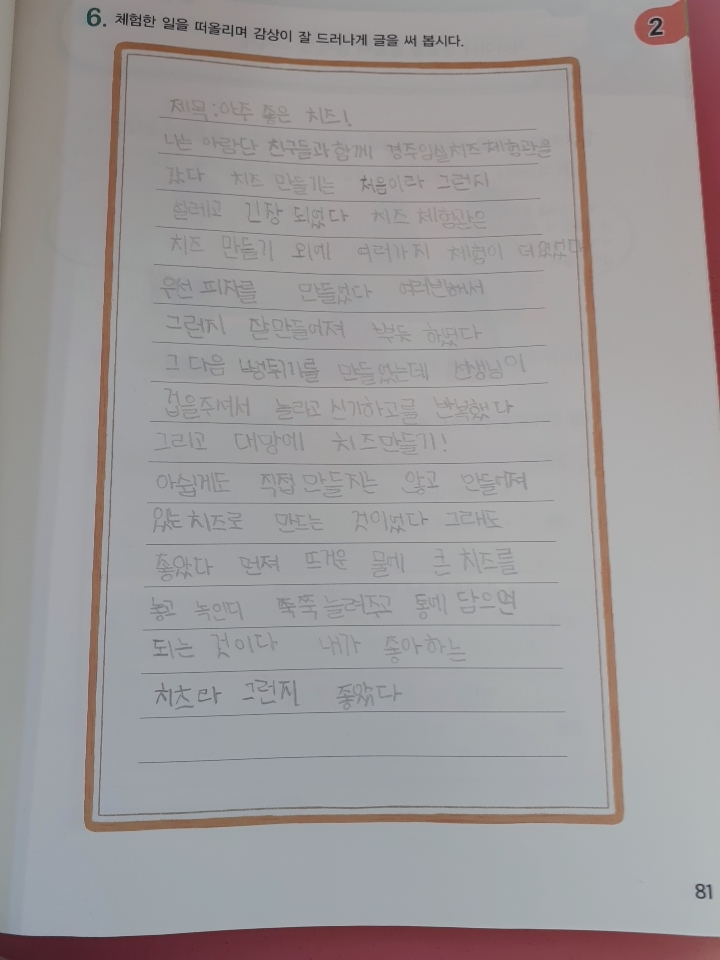 6. 체험한 일을 떠올리며 감상이 잘 드러나게 글을 써 봅시다.
2
제목:아주 좋은 치즈!
나는 아람단 친구들과 함께 경주임실치즈체험관을
갔다 치즈 만들기는 처음이라 그런지
설레고 긴장 되었다 치즈 체험관은
치즈 만들기 외에 여러가지 체험이 더있었다
우선 피자를 만들었다 여러번해서
그런지 잘만들어져 뿌듯 하였다
그 다음 뻥튀기를 만들었는데 선생님이
겁을주셔서 놀라고 신기하고를 반복했다
그리고 대망에 치즈만들기!
아쉽게도 직접 만들지는 않고 만들어져
있는 치즈로 만드는 것이었다 그래도
좋았다 먼저 뜨거운 물에 큰 치즈를
놓고 녹인디 쭉쭉 늘려주고 통에 담으면
되는 것이다 내가 좋아하는
치츠라 그런지 좋았다
81